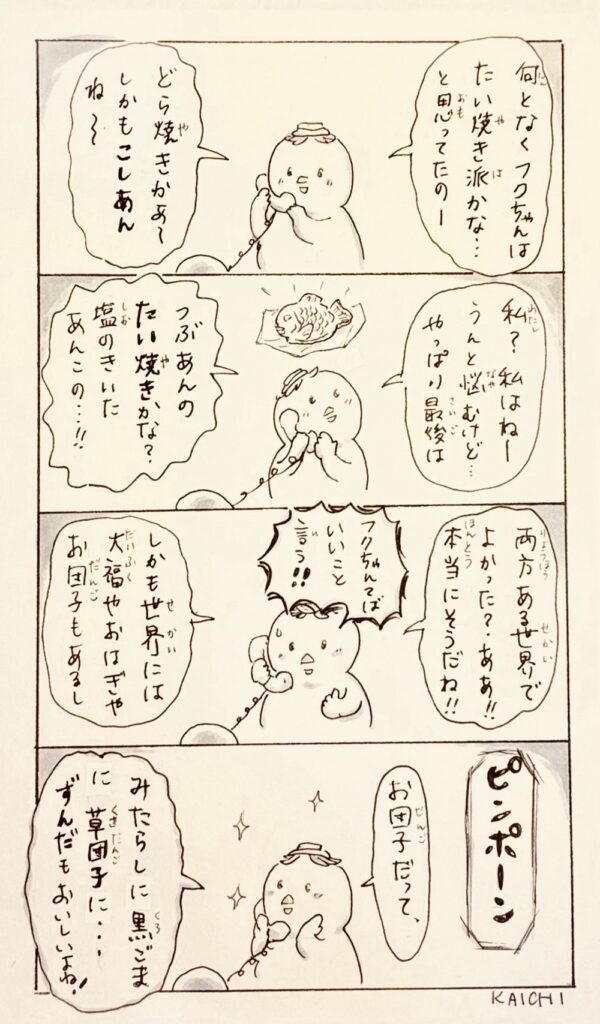 何となくフクちゃんは
たい焼き派かな…
と思ってたのー
どら焼きかあ〜
しかもこしあん
ね〜
私？私はねー
うんと悩むけど…
やっぱり最後は
つぶあんの
たい焼きかな？
塩のきいた
あんこの…!!
両方ある世界で
よかった？ああ!!
本当にそうだね!!
フクちゃんてば
いいこと
言う!!
しかも世界には
大福やおはぎや
お団子もあるし
ピンポーン
お団子だって、
みたらしに黒ごま
に草団子に・・・
ずんだもおいしいよね!
KAICHI